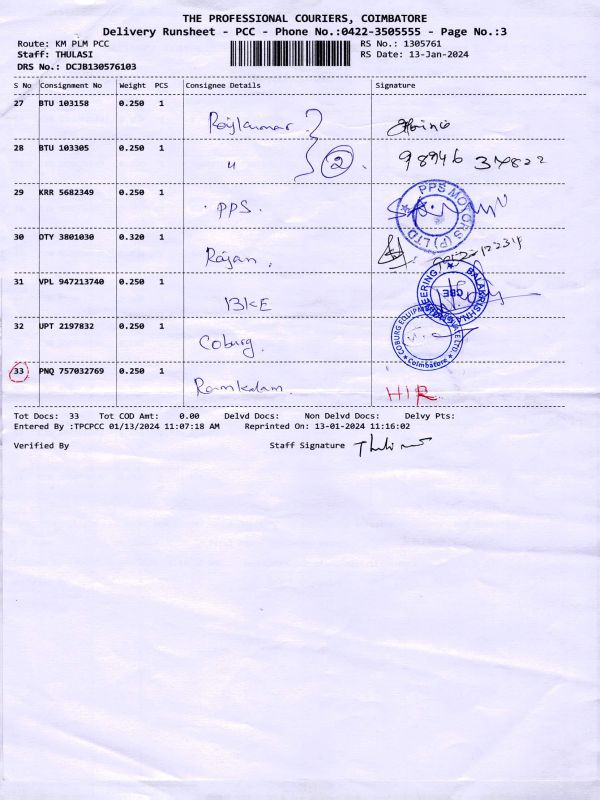 THE PROFESSIONAL COURIERS, COIMBATORE
Delivery Runsheet - PCC - Phone No.:0422-3505555 - Page No.:3
Route: KM PLM PCC RS No.: 1305761
Staff: THULASI RS Date: 13-Jan-2024
DRS No.: DCJB130576103
S No Consignment No Weight PCS Consignee Details Signature
27 BTU 103158 0.250 1 Rajkumar
28 BTU 103305 0.250 1 " 2 98946 37822
29 KRR 5682349 0.250 1 PPS. PPS MOTORS (P) LTD
30 DTY 3801030 0.320 1 Rajan.
31 VPL 947213740 0.250 1 BKE BALAKRISHNA ENGINEERING
32 UPT 2197832 0.250 1 Coburg. COBURG EQUIPMENTS Coimbatore
33 PNQ 757032769 0.250 1 HIR
Tot Docs: 33 Tot COD Amt: 0.00 Delvd Docs: Non Delvd Docs: Delvy Pts:
Entered By :TPCPCC 01/13/2024 11:07:18 AM Reprinted On: 13-01-2024 11:16:02
Verified By Staff Signature